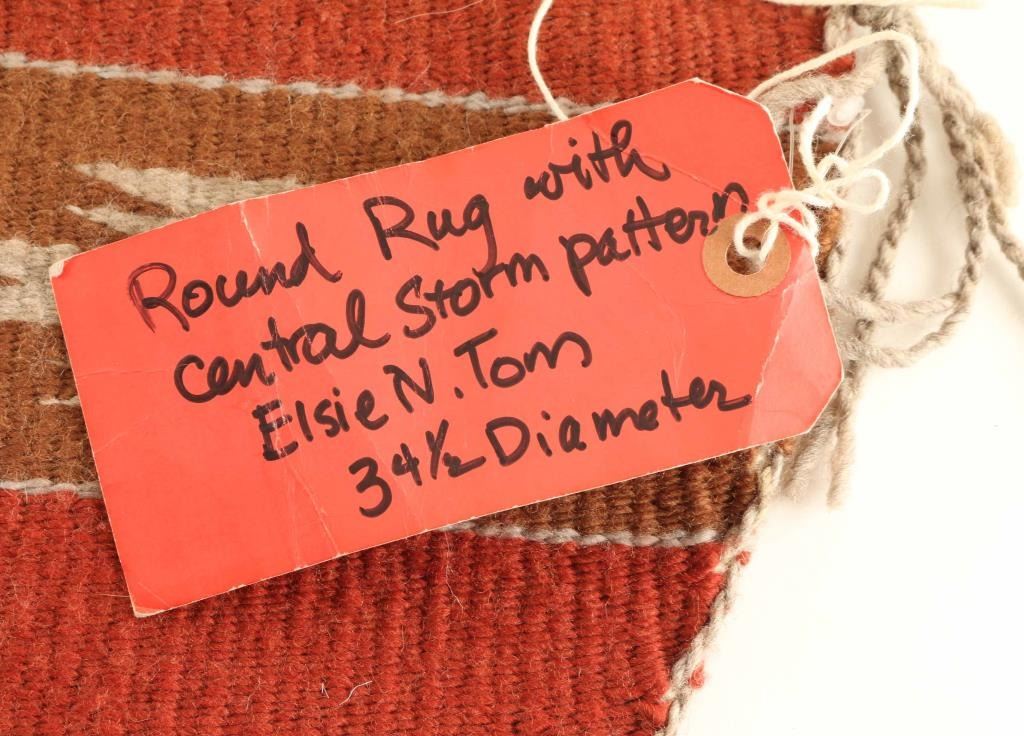 Round Rug with
central Storm pattern
Elsie N. Tom
34½ Diameter